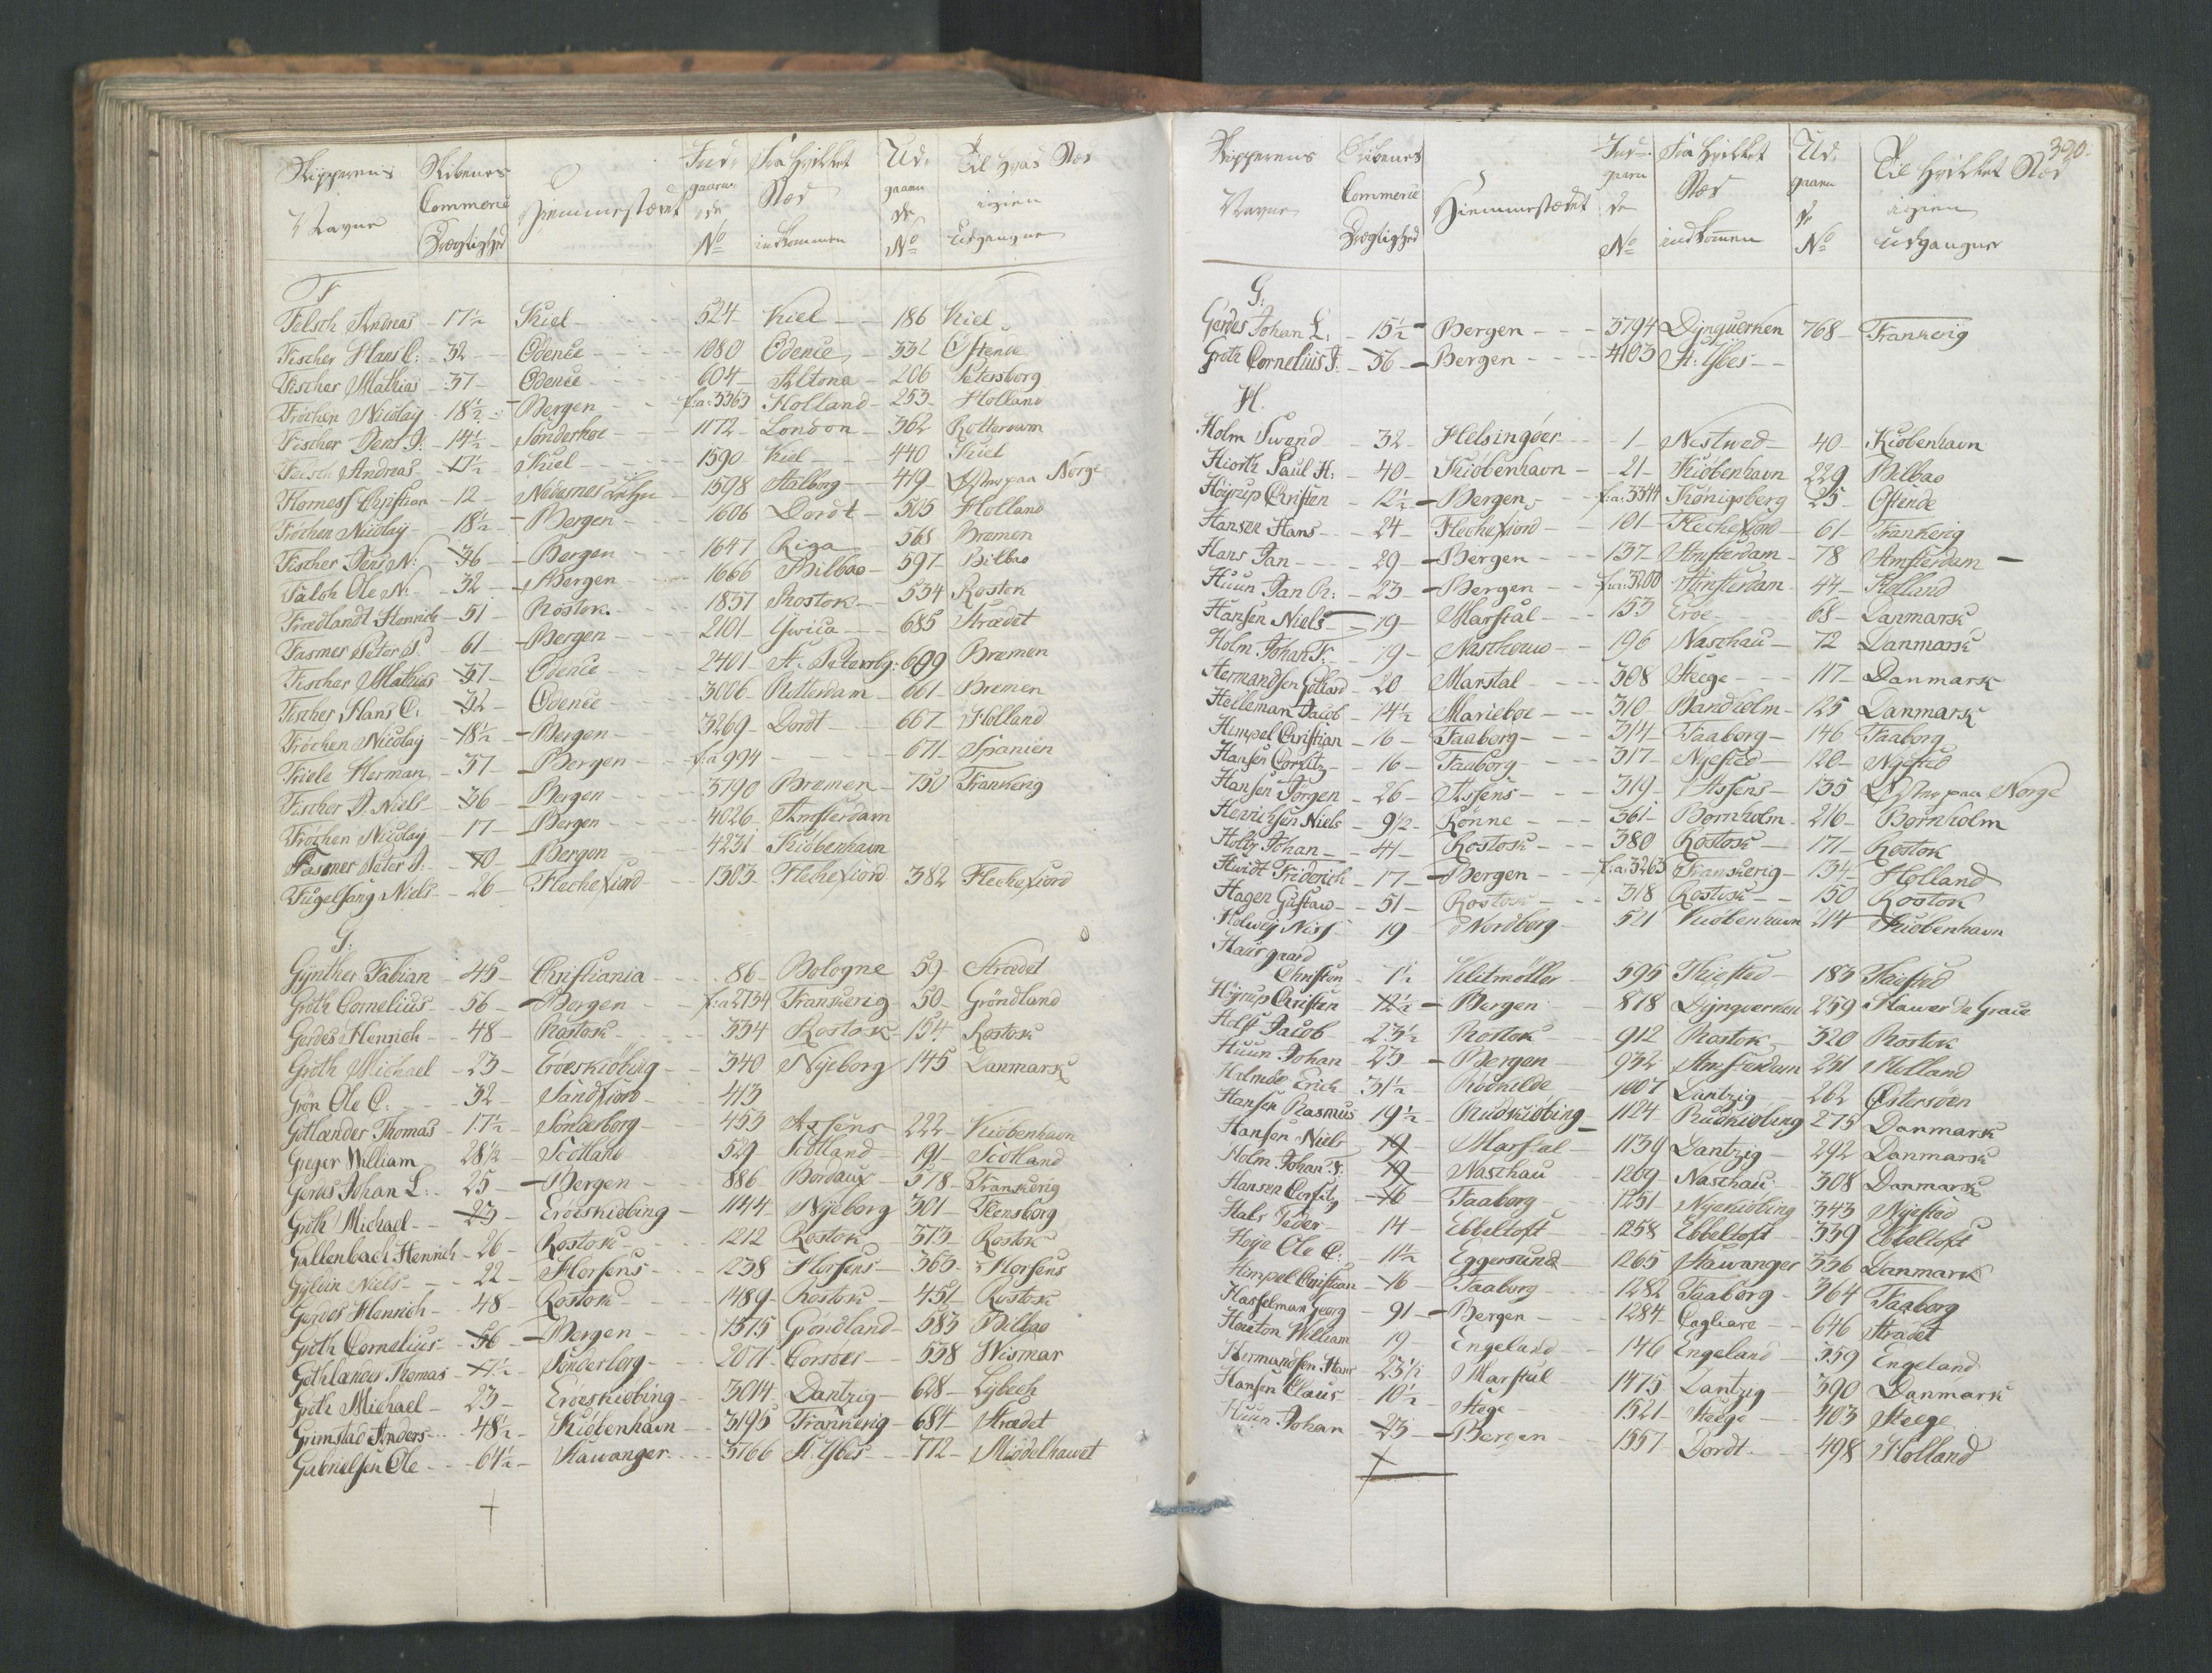 Skipperens Skibenes Ind- fra hvilket Ud- Til hvad Stæd
Navne Commerce Hjemmestædet gaaende Stæd gaaende igien
Drægtighed No indkommen No Udgangne
F
Felsch Andreas - 17½ Kiel - 524 Kiel - 186 Kiel
Fischer Hans C: - 32 - Odence - 1080 Odence - 332 Ostende
Fischer Mathias - 37 - Odence - 604 - Altona - 206 Petersborg
Fröchen Nicolay - 18½ - Bergen - f:a: 3363 Holland - 253 - Holland
Fischer Jens J: - 14½ - Sönderhoe - 1172 - London - 362 Rotterdam
Felsch Andreas - 17½ - Kiel - 1590 Kiel - 440 Kiel
Flornes Christian - 12 - Nedenes Lehn - 1598 Aalborg - 419 - Öster paa Norge
Fröchen Nicolay - 18½ - Bergen - 1606 Dordt - 505 Holland
Fischer Jens N: - 36 - Bergen - 1647 Riga - 568 Bremen
Falch Ole N: - 32 - Bergen - 1666 Bilbao - 597 - Bilbao
Frædlandt Henrich - 51 - Rostok - 1837 Rostok - 534 Rostok
Fasmer Peter J: - 61 - Bergen - 2101 - Yvica - 685 Strædet
Fischer Mathias - 37 - Odence - 2401 - St. Petersbg: 609 Bremen
Fischer Hans C: - 32 - Odence - 3006 - Rotterdam - 661 - Bremen
Fröchen Nicolay - 18½ - Bergen - 3269 - Dordt - 667 - Holland
Friele Herman - 37 - Bergen - f:a 994 - 671 - Spanien
Fischer J. Niels - 36 - Bergen - 3790 Bremen - 750 Frankerig
Fröchen Nicolay - 17 - Bergen - 4026 Amsterdam
Fasmer Peter J: - 70 - Bergen - 4231 Kiöbenhavn
Fugelsang Niels - 26 - Flechefiord - 1303 - Flechefiord 382 Flechefiord
G:
Gÿnther Fabian - 45 - Christiania - 86 - Bologne 59 - Strædet
Groth Cornelius - 56 - Bergen - f:a 2734 Frankerig - 50 - Gröndland
Gerdes Henrich - 48 - Rostok - 334 Rostok - 154 Rostok
Groth Michael - 23 - Eröeskiöbing - 340 Nÿeborg 145 Danmark
Grön Ole C: - 32 - Sandfiord - 413
Gotlænder Thomas - 17½ - Sönderborg - 453 Assens 222 - Kiöbenhavn
Greger William 28½ - Scotland - 529 Scotland - 191 - Scotland
Gerdes Johan L: - 25 - Bergen - 886 Bordaux - 378 - Frankerig
Groth Michael - 23 - Eröeskiöbing - 1144 Nÿeborg 301 - Flensborg
Gallenbach Henrich - 26 - Rostok - 1212 Rostok - 373 - Rostok
Gÿldin Niels - 22 - Horsens - 1238 Horsens - 363 - Horsens
Gerdes Henrich - 48 - Rostok - 1489 - Rostok - 451 Rostok
Groth Cornelius - 56 - Bergen - 1575 Gröndland - 583 Bilbao
Gothlander Thomas - 17½ - Sönderborg - 2071 Corsöer - 538 Wismar
Groth Michael - 23 - Eröeskiöbing - 3014 - Dantzig - 628 - Lÿbech
Grimstad Anders - 48½ - Kiöbenhavn - 3195 Frankerig - 684 Strædet
Gabrielsen Ole - 64½ - Stawanger - 3766 St. Ybes - 772 - Middelhavet
320.
Skipperens Skibenes Ind- fra hvilket Ud- Til hvilket Stæd
Navne Commerce Hjemmestædet gaaende Stæd gaaende igien
Drægtighed No indkommen No Udganguer
G:
Gerdes Johan L: - 15½ - Bergen - 3794 Dÿnquerken 768 - Frankerig
Groth Cornelius J: - 56 - Bergen - 4103 St: Ybes
H.
Holm Swend - 32 - Helsingöer - 1 - Nestwed - 40 - Kiöbenhavn
Hiorth Paul H: - 40 - Kiöbenhavn - 21 - Kiöbenhavn 229 Bilbao
Höÿrup Christen - 12½ - Bergen - f:a: 3344 Königsberg 25 - Ostende
Hansen Hans - 24 - Flechefiord - 101 - Flechefiord - 61 - Frankerig
Hans Jan - 29 - Bergen - 137 - Amsterdam - 78 Amsterdam
Huun Jan R: - 23 - Bergen - f:a: 3200 Amsterdam - 44 - Holland
Hansen Niels - 19 - Marstal - 153 Eröe - 68 - Danmark
Holm Johan F: - 19 - Naschouw - 196 Naschau - 72 Danmark
Hermandsen Gotlard - 20 Marstal - 308 Steege - 117 - Danmark
Helleman Jacob - 14½ Marieboe - 310 Bandholm - 125 Danmark
Himpel Christian - 16 - Faaborg - 314 - Faaborg - 146 Faaborg
Hansen Corfitz - 16 - Faaborg - 317 - Nÿested - 120 - Nÿested
Hansen Jörgen - 26 - Assens - 319 - Assens - 135 Öster paa Norge
Henrichsen Niels - 9½ - Rönne - 361 - Bornholm - 216 - Bornholm
Holtz Johan - 41 - Rostok - 380 Rostok - 171 - Rostok
Huidt Friderich - 17 - Bergen - f:a: 3263 Frankerig - 134 - Holland
Hagen Gustaw - 51 - Rostok - 318 Rostok - 150 Rostok
Holweg Niss - 19 - Nordborg - 521 Kiöbenhavn 214 - Kiöbenhavn
Haursgaard
Christen - 7½ Klitmöller - 595 Thisted - 183 Thisted
Höÿrup Christen - 12½ - Bergen - 878 Dÿnqverken 259 Hawer De Grace
Holst Jacob - 23½ Rostok - 912 Rostok - 320 Rostok
Huun Johan - 23 - Bergen - 932 Amsterdam 251 Holland
Holmboe Erich 31½ - Roskilde - 1007 Dantzig - 262 Östersöen
Hansen Rasmus 19½ - Rudkiöbing - 1124 - Rudkiöbing 275 Danmark
Hansen Niels - 19 - Marstal - 1139 Dantzig - 292 Danmark
Holm Johan F: - 19 - Naschau - 1209 Naschau - 308 Danmark
Hansen Corfitz - 16 - Faaborg - 1251 - Nÿekiöbing 343 Nÿested
Hals Peder - 14 - Ebbeltoft - 1258 Ebbeltoft - 339 Ebbeltoft
Höÿe Ole C: - 11½ - Eggersund - 1265 Stawanger 336 Danmark
Himpel Christian - 16 - Faaborg - 1282 Faaborg - 364 Faaborg
Hasselman Georg - 91 - Bergen - 1284 - Cagliare - 646 Strædet
Houton William 19 - Engeland - 146 Engeland 359 Engeland
Hermandsen Hans 23½ Marstal - 1475 Dantzig - 390 Danmark
Hansen Claus - 10½ - Stege - 1521 - Steege - 403 Steege
Huun Johan - 23 - Bergen - 1557 Dordt - 498 Holland